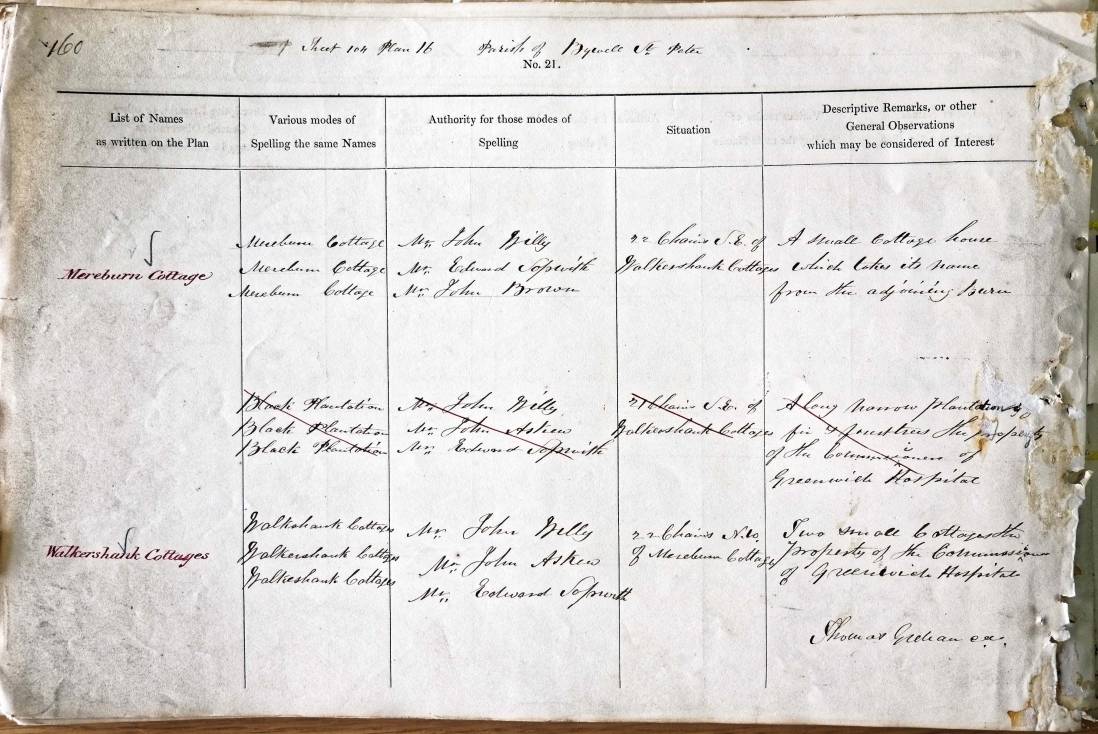 160
Sheet 104 Plan 16 Parish of Bywell St Peter
No. 21.
List of Names
as written on the Plan
Various modes of
Spelling the same Names
Authority for those modes of
Spelling
Situation
Descriptive Remarks, or other
General Observations
which may be considered of Interest
Mereburn Cottage
Mereburn Cottage
Mereburn Cottage
Mereburn Cottage
Mr. John Willy
Mr. Edward Sopwith
Mr. John Brown
22 Chains S.E. of
Walkershank Cottages
A small Cottage house
which takes its name
from the adjoining Burn
Black Plantation
Black Plantation
Black Plantation
Mr. John Willy
Mr. John Askew
Mr. Edward Sopwith
21 Chains S.E. of
Walkershank Cottages
A long narrow Plantation of
fir & the property
of the Commissioners of
Greenwich Hospital
Walkershank Cottages
Walkshank Cottages
Walkershank Cottages
Walkeshank Cottages
Mr. John Willy
Mr. John Askew
Mr. Edward Sopwith
22 Chains N.W.
of Mereburn Cottage
Two small Cottages the
property of the Commissioners
of Greenwich Hospital
Thomas